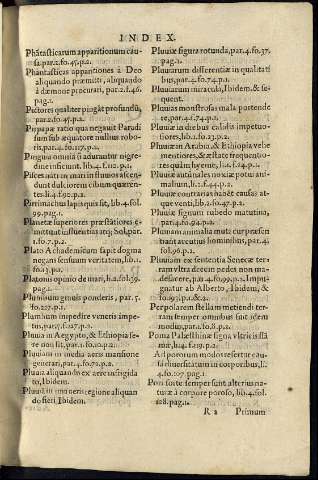 INDEX.
Phãtasticarum apparitionum cau-
sa. par.2. fo.45. p.2.
Phantasticas apparitiones à Deo
aliquando præmitti, aliquando
à dæmone procurari, par.2. f.46.
pag.1.
Pictores qualiter pingãt profundũ,
par.2. fo.45. p.2.
Pirpapæ ratio qua negauit Paradi
sum sub æquatore nullus robo-
ris, par.4. fo.117. p.2.
Pinguia omnia si adurantur nigre-
dine inficiunt. lib.4. f.110. p.1.
Pisces natu in mari in fluuios ascen-
dunt dulciorem cibum quæren-
tes. li.4. f.92. p.2.
Pirrimachus lapis quis sit, lib.4. fol.
99. pag.1.
Planetæ superiores præstãtiores e-
runt
sed
influentius
atq; Sol, par.
1. fo.7. p.2.
Plato Academicum sapit dogma
negans sensuum veritatem, lib.1.
fo.13. p.1.
Platonis opinio de mari, li.2. fol.39.
pag.1.
Plumbum genus ponderis, par.5.
fo.127. p.2.
Plumbum impedire veneris impe-
tus, par.5. f.127. p.2.
Pluuia in Aegypto, & Ethiopia fe-
re non fit, par.4. fo.72. p.2.
Pluuiam in media aeris mansione
generari, par.4. fo.72. p.1.
Pluuia aliquando ex aere infrigida
to, Ibidem.
Pluuia in monte aeris regione aliquan
do fieri Ibidem.
Pluuiæ figura rotunda, par.4. fo.37.
pag.1.
Pluuiarum differentiæ in qualitati
bus, par.4. f.74. p.1.
Pluuiarum miracula, Ibidem, & se-
quent.
Pluuias monstrosas mala portende
re, par.4. f.74. p.1.
Pluuiæ in diebus calidis impetuo-
siores, lib.2. fo.23. p.2.
Pluuiæ in Arabia, & Ethiopia vehe
mentiores, & æstate frequentio-
res quàm hyeme, li.2. f.44. p.1.
Pluuiæ autũnales noxiæ potui ani-
malium, li.2. f.44. p.2.
Pluuiæ contrarias habẽt causas at-
que venti, lib.2. fo.47. p.2.
Pluuiæ figuram tubedo matutina,
par.4. fo.94. p.2.
Pluuiam animalia muta cur præsen
tiant acutius hominibus, par.4.
fol.96. p.1.
Pluuiam ex sententia Senecæ ter-
ram vltra decem pedes non ma-
defacere, par.4. fo.99. p.1. Impu-
gnatur ab Alberto, Ibidem, &
fo.93. p.1. & 2.
Per polarem stellam metiendi ter-
ram semper omnibus sub idem
modus, par.1. fo.8. p.2.
Poma Palæstinæ signa vltricis flã
mæ, li.4. f.219. p.2.
Ad pororum modos resertur cau-
sa diuersitatum in corporibus, li.
4. fo.127. pag.1.
Pori forte semper sunt alterius na-
turæ à corpore poroso, lib.4. fol.
128. pag.1.
R 2
Primum